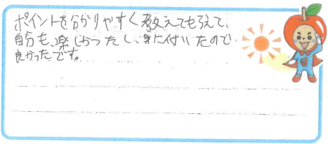 ポイントを分かりやすく教えてもらえて、
自分も楽しかったし、身に付いたので
良かったです。